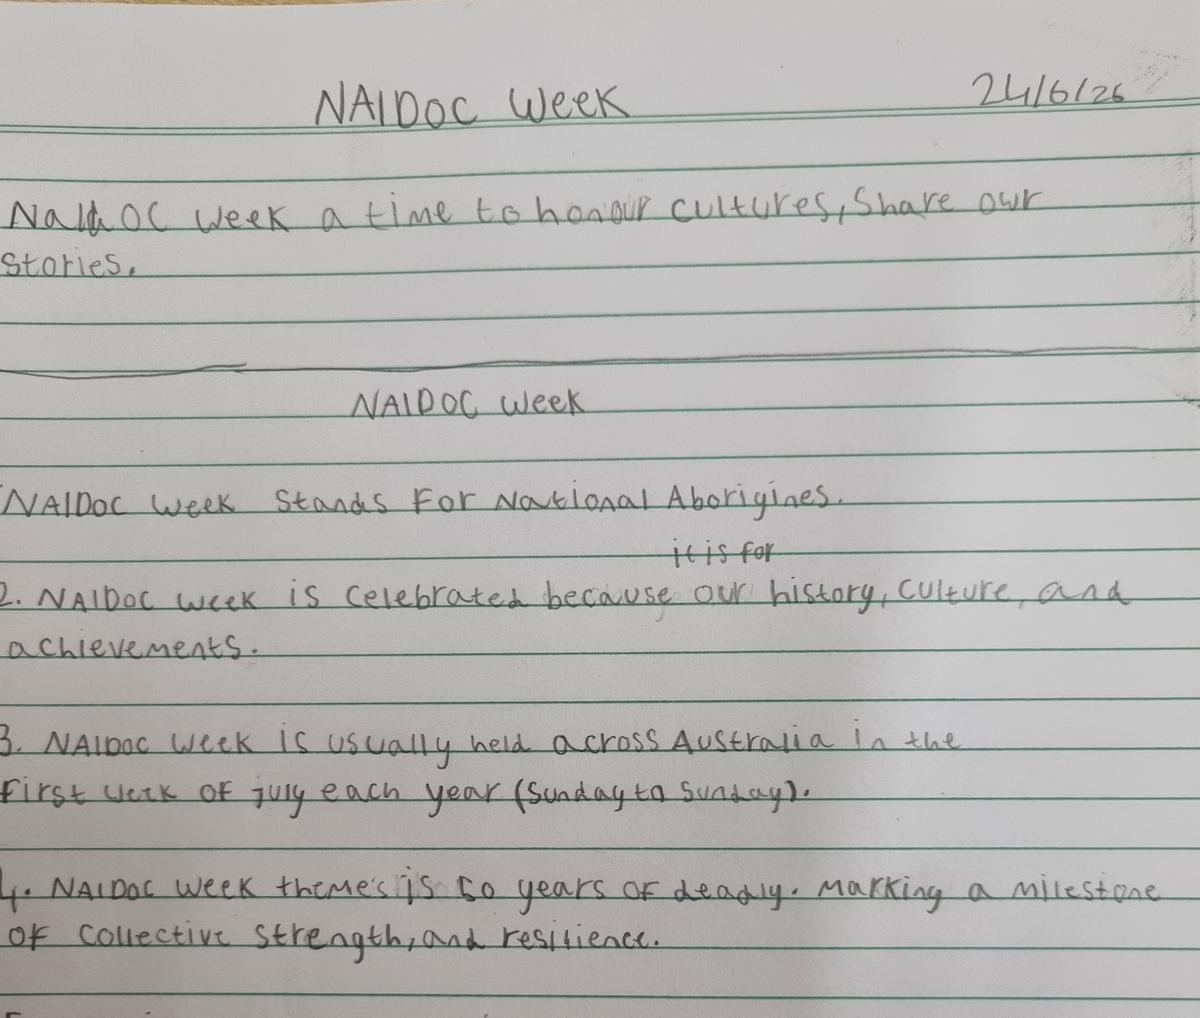 NAIDOC Week 24/6/26
NaIdOC Week a time to honour cultures, Share our
Stories.
NAIDOC Week
NAIDOC Week Stands For National Aborigines.
it is for
2. NAIDOC Week is celebrated because our history, culture, and
achievements.
3. NAIDOC Week is usually held across Australia in the
First week of july each year (Sunday to Sunday).
4. NAIDOC Week theme's is 50 years of deadly. Marking a milestone
of collective strength, and resilience.